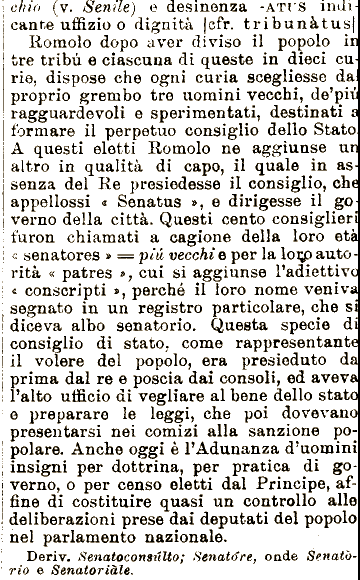 chio (v. Senile) e desinenza -ATUS indi-
cante uffizio o dignità [cfr. tribunàtus]
Romolo dopo aver diviso il popolo in
tre tribú e ciascuna di queste in dieci cu-
rie, dispose che ogni curia scegliesse dal
proprio grembo tre uomini vecchi, de'piú
ragguardevoli e sperimentati, destinati a
formare il perpetuo consiglio dello Stato
A questi eletti Romolo ne aggiunse un
altro in qualità di capo, il quale in as-
senza del Re presiedesse il consiglio, che
appellossi « Senatus », e dirigesse il go-
verno della città. Questi cento consiglieri
furon chiamati a cagione della loro età
« senatores » = piú vecchi e per la loro auto-
rità « patres », cui si aggiunse l'adiettivo
« conscripti », perché il loro nome veniva
segnato in un registro particolare, che si
diceva albo senatorio. Questa specie di
consiglio di stato, come rappresentante
il volere del popolo, era presieduto da
prima dal re e poscia dai consoli, ed aveva
l'alto ufficio di vegliare al bene dello stato
e preparare le leggi, che poi dovevano
presentarsi nei comizi alla sanzione po-
polare. Anche oggi è l'Adunanza d'uomini
insigni per dottrina, per pratica di go-
verno, o per censo eletti dal Principe, af-
fine di costituire quasi un controllo alle
deliberazioni prese dai deputati del popolo
nel parlamento nazionale.
Deriv. Senatoconsúlto; Senatóre, onde Senatò-
rio e Senatoriàle.